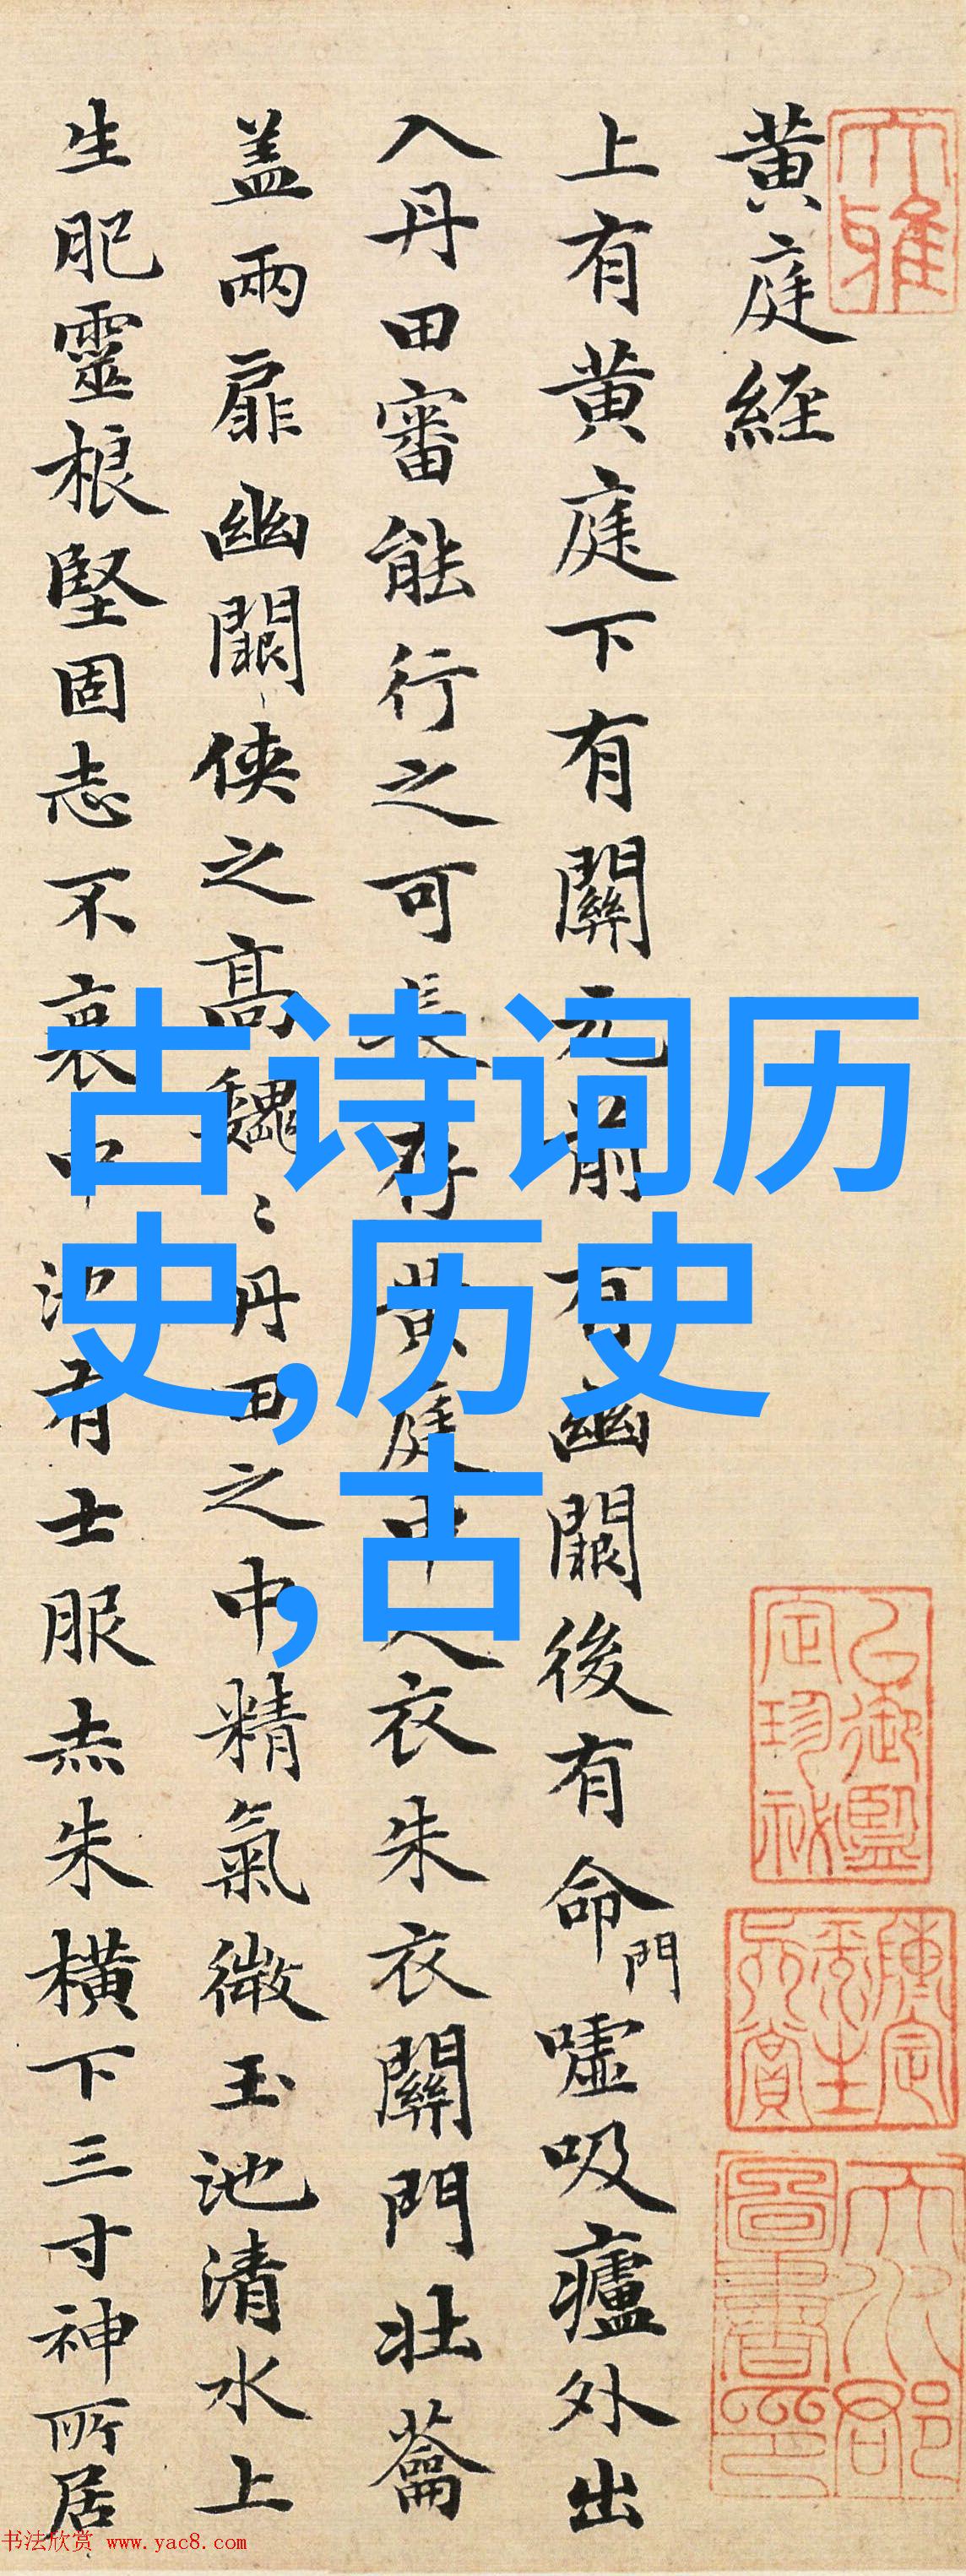 黄庭経
上有黄庭下有關元前有幽闕後有命門嘘吸廬外出
入丹田審能行之可長存黄庭中人衣朱衣關門壯蘥
盖兩扉幽闕侠之高魏〻丹田之中精氣微玉池清水上
生肥靈根堅固志不衰中池有士服赤朱横下三寸神所居
古诗词历
史,历史
,古
书法欣赏 www.yac8.com